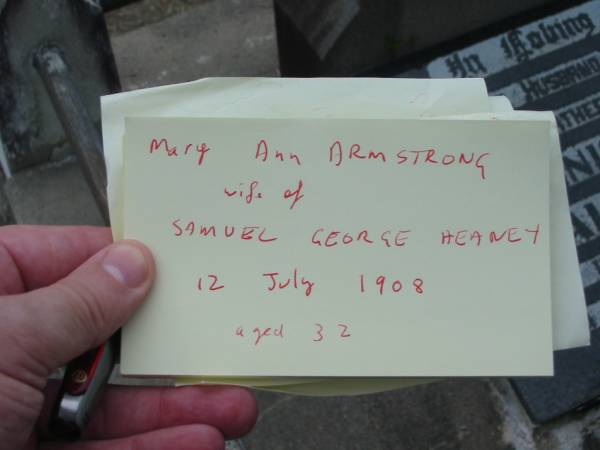 Mary Ann ARMSTRONG
wife of
SAMUEL GEORGE HEANEY
12 July 1908
aged 32
In Loving
HUSBAND